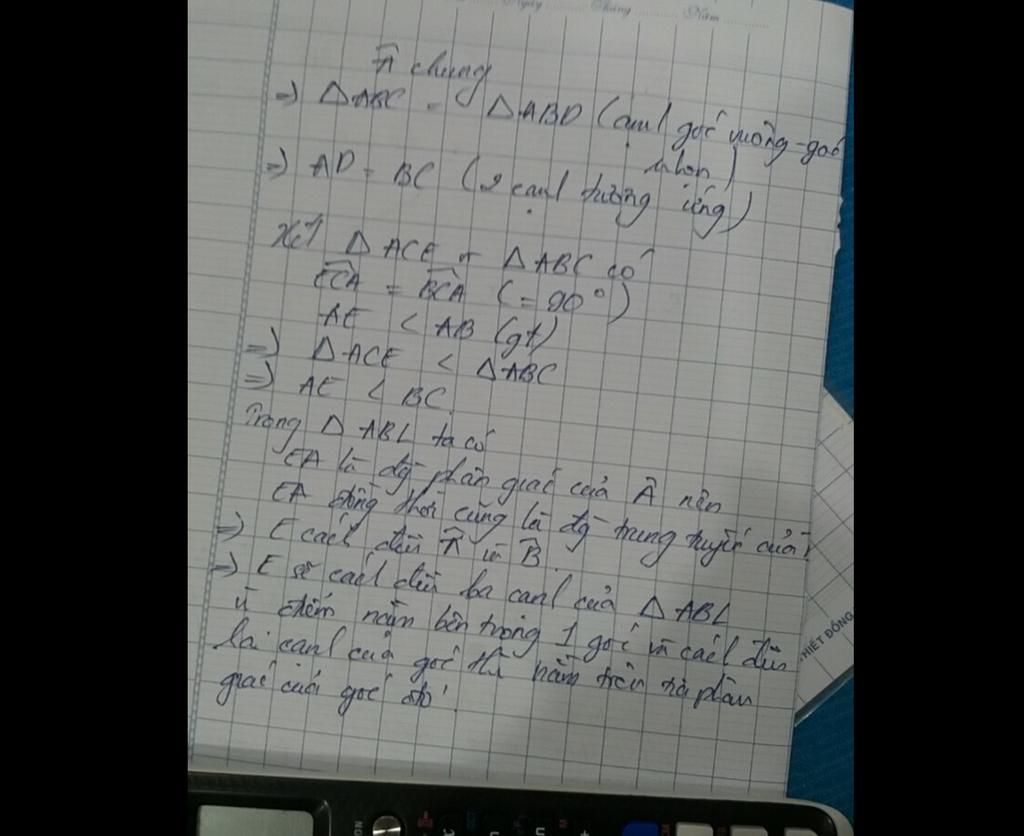 Ngày Tháng Năm
Â chung
=> ΔABC = ΔABD (cạnh góc vuông-góc
nhọn)
=> AD = BC (2 cạnh tương ứng)
Xét ΔACE và ΔABC có
ECA = BCA (= 90°)
AE < AB (gt)
=> ΔACE < ΔABC
=> AE < BC.
Trong ΔABL ta có
EA là đg phân giác của Â nên
EA đồng thời cũng là đg trung tuyến của
=> E cách đều Â và B̂.
=> E sẽ cách đều ba cạnh của ΔABL
vì điểm nằm bên trong 1 góc và cách đều
hai cạnh của góc thì nằm trên tia phân
giác của góc đó.
THIẾT ĐÔNG